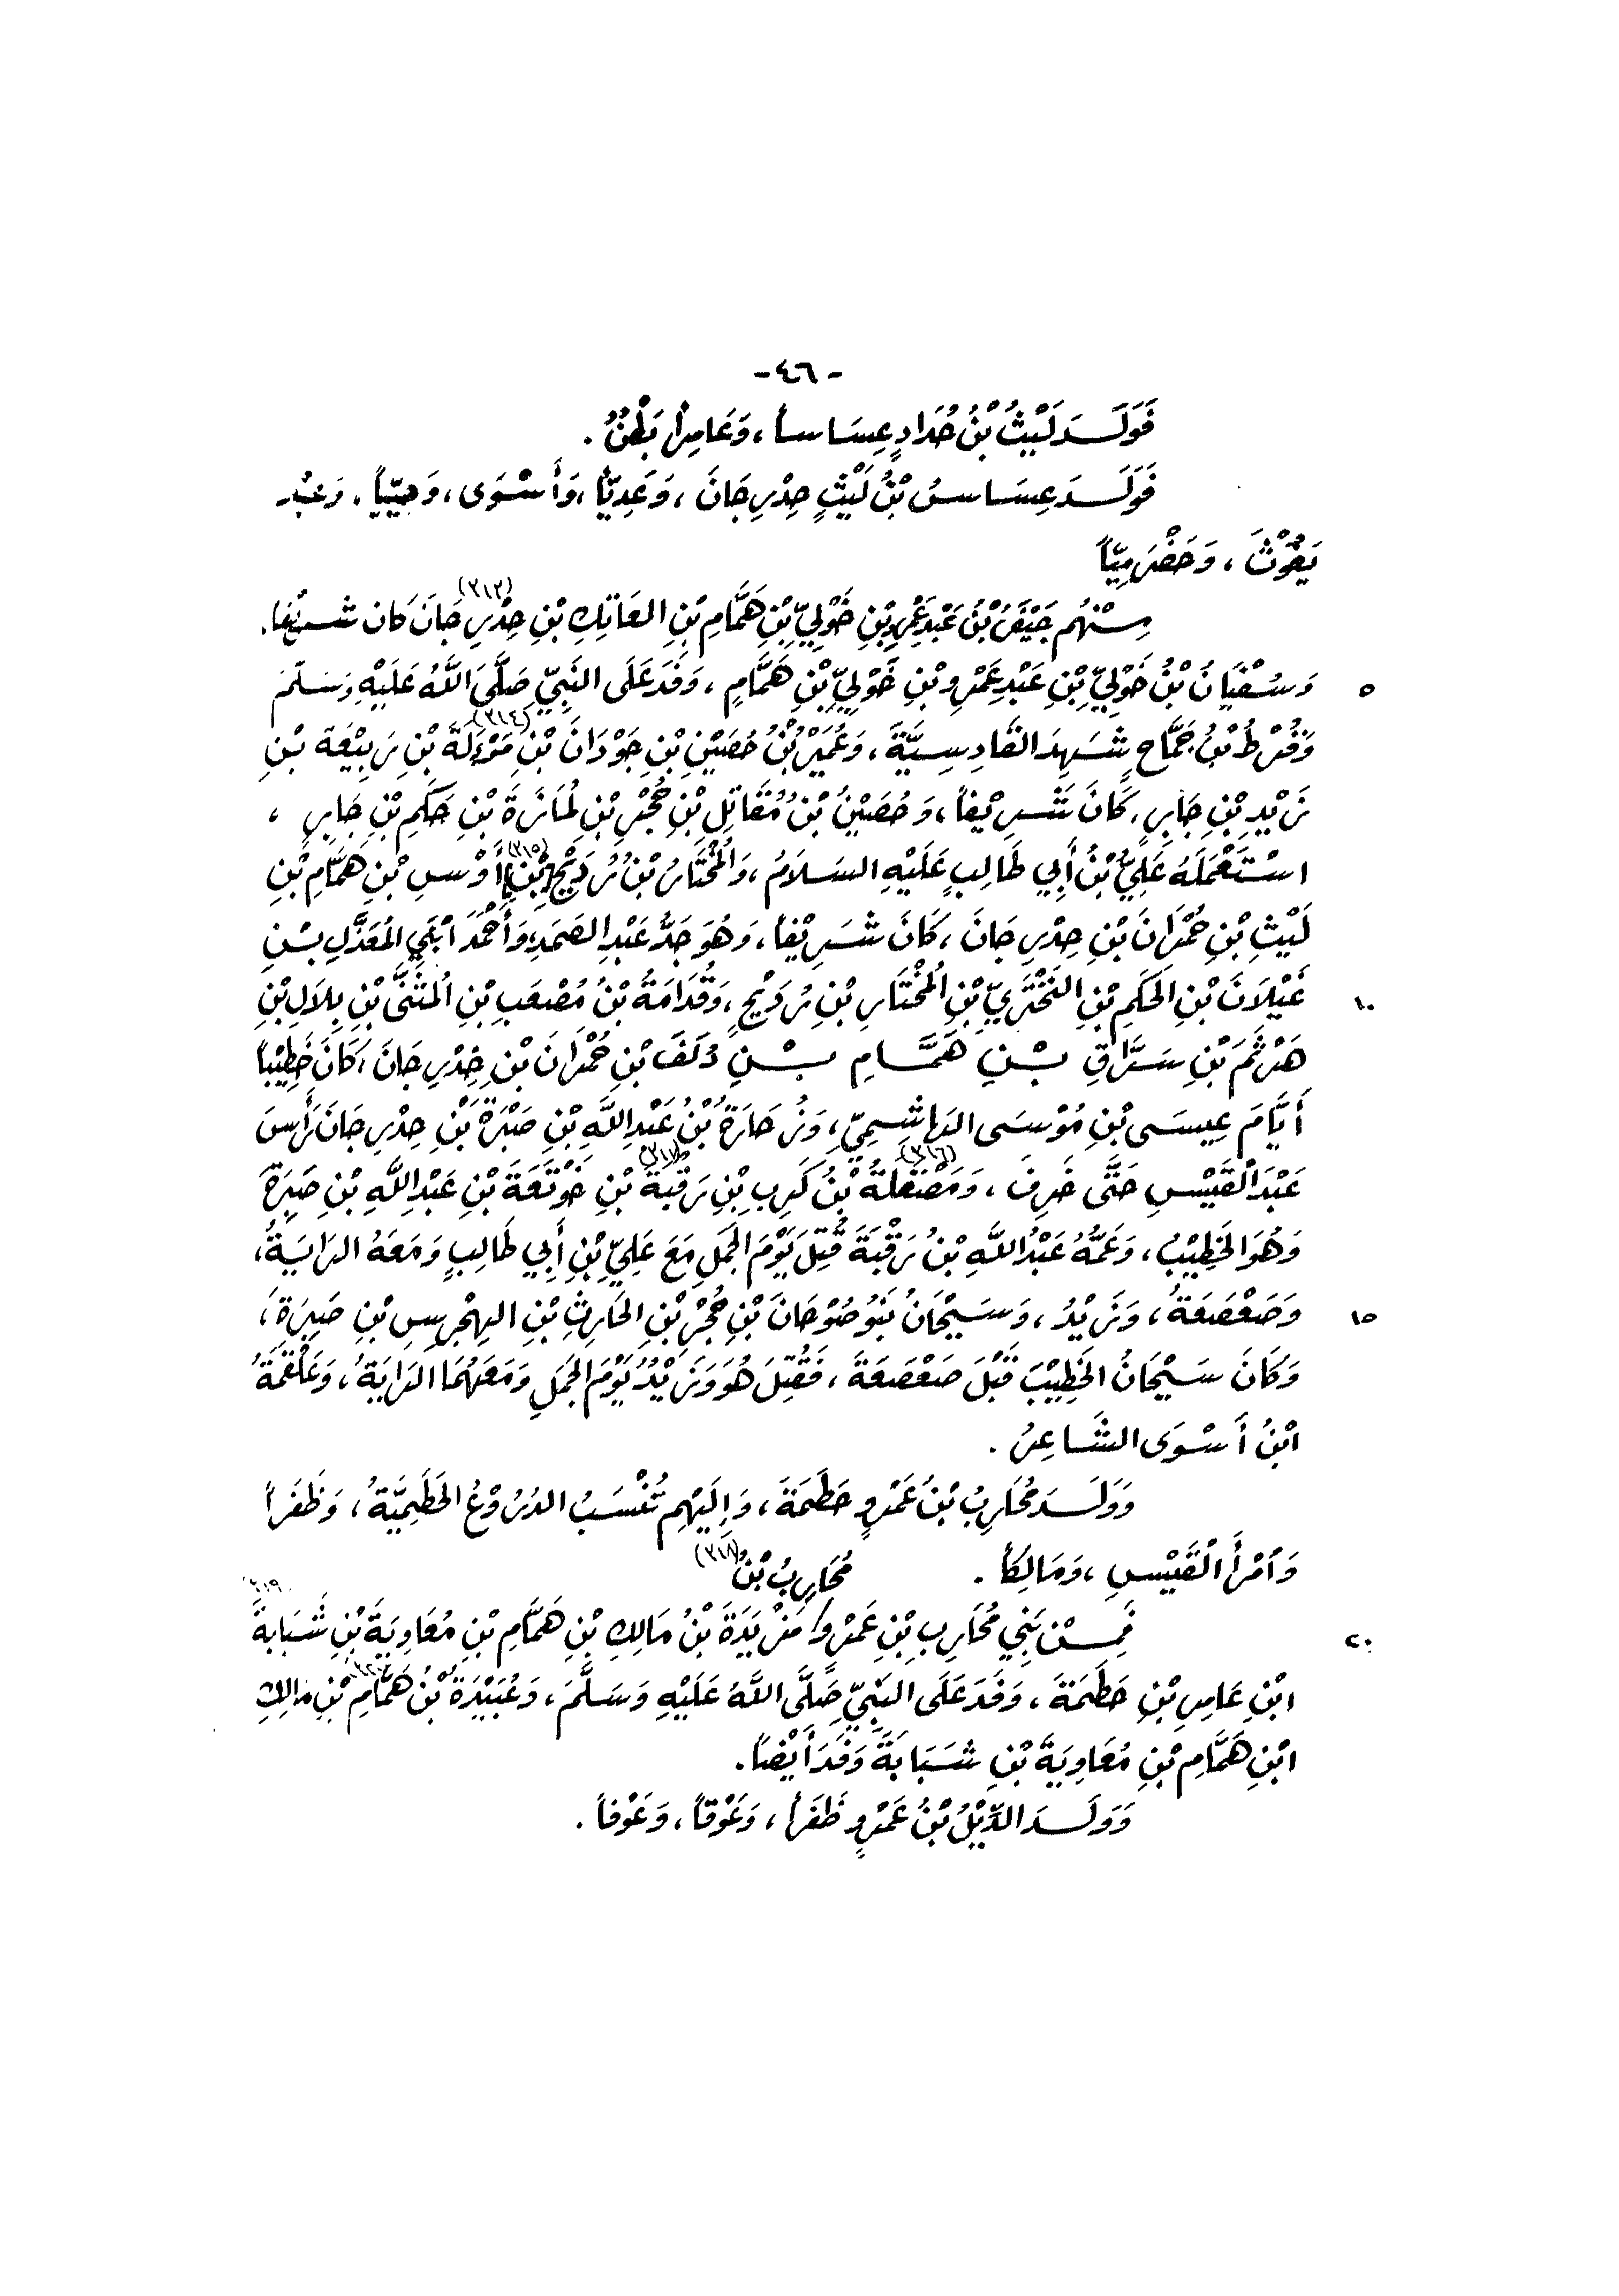 -٤٦-
فَوَلَدَ لَيْثُ بْنُ حُدَادٍ عِسَاساً، وَعَامِراً بَطْنٌ.
فَوَلَدَ عِسَاسُ بْنُ لَيْثٍ حِدْرِجَانَ، وَعَدِيّاً، وَأَسْوَى، وَحُيَيّاً، وَعَبْدَ
يَغُوْثَ، وَحَضْرَمِيّاً
مِنْهُم جَيْفَرُ بْنُ عَبْدِ عَمْرِو بْنِ خَوْلِيّ بْنِ هَمَّامِ بْنِ العَاتِكِ بْنِ حِدْرِجَانَ (٣١٣) كَانَ شَرِيْفاً.
٥ وَسُفْيَانُ بْنُ خَوْلِيّ بْنِ عَبْدِ عَمْرِو بْنِ خَوْلِيّ بْنِ هَمَّامٍ، وَفَدَ عَلَى النَّبِيّ صَلَّى اللَّهُ عَلَيْهِ وَسَلَّمَ
وَقُرْطُ بْنُ جَمَّاحٍ شَهِدَ القَادِسِيَّةَ، وَعُمَيْرُ بْنُ حُصَيْنِ بْنِ جَوْدَانَ بْنِ مَوْءَلَةَ (٣١٤) بْنِ رَبِيْعَةَ بْنِ
زَيْدِ بْنِ جَابِرٍ، كَانَ شَرِيْفاً، وَحُصَيْنُ بْنُ مُقَاتِلِ بْنِ حُجْرِ بْنِ لُمَازَةَ بْنِ حَكَمِ بْنِ جَابِرٍ،
اسْتَعْمَلَهُ عَلِيُّ بْنُ أَبِي طَالِبٍ عَلَيْهِ السَلَامُ، وَالمُخْتَارُ بْنُ رُدَيْحِ [بْنِ] (٣١٥) أَوْسِ بْنِ هَمَّامِ بْنِ
لَيْثِ بْنِ حُمْرَانَ بْنِ حِدْرِجَانَ، كَانَ شَرِيْفاً، وَهُوَ جَدُّ عَبْدِ الصَمَدِ وَأَحْمَدَ ابْنَيِ المُعَذَّلِ بْنِ
١٠ غَيْلَانَ بْنِ الحَكَمِ بْنِ البَخْتَرِيّ بْنِ المُخْتَارِ بْنِ رُدَيْحٍ، وَقُدَامَةُ بْنُ مُصْعَبِ بْنِ المُثَنَّى بْنِ بِلَالِ بْنِ
هَرْثَمَ بْنِ سَرَّاقِ بْنِ هَمَّامِ بْنِ دُلَفَ بْنِ حُمْرَانَ بْنِ حِدْرِجَانَ، كَانَ خَطِيْباً
أَيَّامَ عِيسَى بْنِ مُوْسَى الهَاشِمِيّ، وَزُحَارَةُ بْنُ عَبْدِ اللَّهِ بْنِ صَبْرَةَ بْنِ حِدْرِجَانَ رَأَسَ
عَبْدَ القَيْسِ حَتَّى خَرِفَ، وَمَصْقَلَةُ (٣١٦) بْنُ كَرِبِ بْنِ رَقْبَةَ (٣١٧) بْنِ خَوْتَعَةَ بْنِ عَبْدِ اللَّهِ بْنِ صَبِرَةَ
وَهُوَ الخَطِيْبُ، وَعَمُّهُ عَبْدُ اللَّهِ بْنُ رَقْبَةَ قُتِلَ يَوْمَ الجَمَلِ مَعَ عَلِيّ بْنِ أَبِي طَالِبٍ وَمَعَهُ الرَايَةُ،
١٥ وَصَعْصَعَةُ، وَزَيْدُ، وَسَيْحَانُ بَنُو صُوْحَانَ بْنِ حُجْرِ بْنِ الحَارِثِ بْنِ الهِجْرِسِ بْنِ صَبِرَةَ،
وَكَانَ سَيْحَانُ الخَطِيْبَ قَبْلَ صَعْصَعَةَ، فَقُتِلَ هُوَ وَزَيْدٌ يَوْمَ الجَمَلِ وَمَعَهُمَا الرَايَةُ، وَعَلْقَمَةُ
ابْنُ أَسْوَى الشَّاعِرُ.
وَوَلَدَ مُحَارِبُ بْنُ عَمْرٍو حَطَمَةَ، وَإِلَيْهِم تُنْسَبُ الدُرُوْعُ الحَطَمِيَّةُ، وَظَفَراً
وَامْرَأَ القَيْسِ، وَمَالِكاً. مُحَارِبُ بْنُ (٣١٨)
٢٠ فَمِنْ بَنِي مُحَارِبِ بْنِ عَمْرٍو/ مَزْيَدَةَ بْنُ مَالِكِ بْنِ هَمَّامِ بْنِ مُعَاوِيَةَ بْنِ شَبَابَةَ (٣١٩)
ابْنِ عَامِرِ بْنِ حَطَمَةَ، وَفَدَ عَلَى النَبِيّ صَلَّى اللَّهُ عَلَيْهِ وَسَلَّمَ، وَعُبَيْدَةُ بْنُ هَمَّامِ بْنِ مَالِكِ
ابْنِ هَمَّامِ بْنِ مُعَاوِيَةَ بْنِ شَبَابَةَ وَفَدَ أَيْضاً.
وَوَلَدَ الدِّيْلُ بْنُ عَمْرٍو ظَفَراً، وَعَوْقاً، وَعَوْفاً.